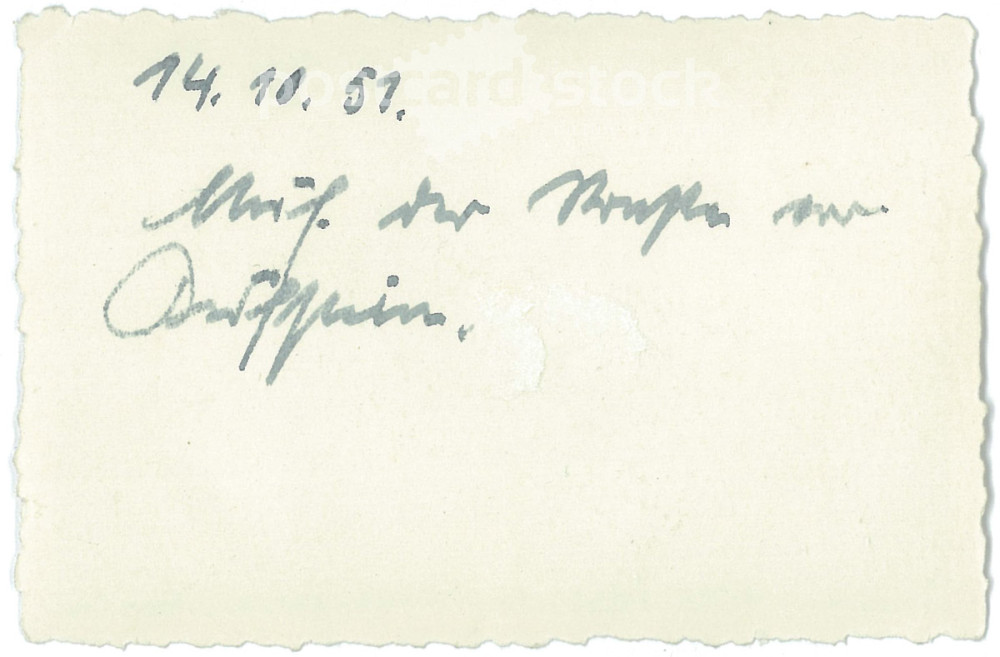 postcard stock
14. 10. 51.
Auf der Straße vor
Kufstein.